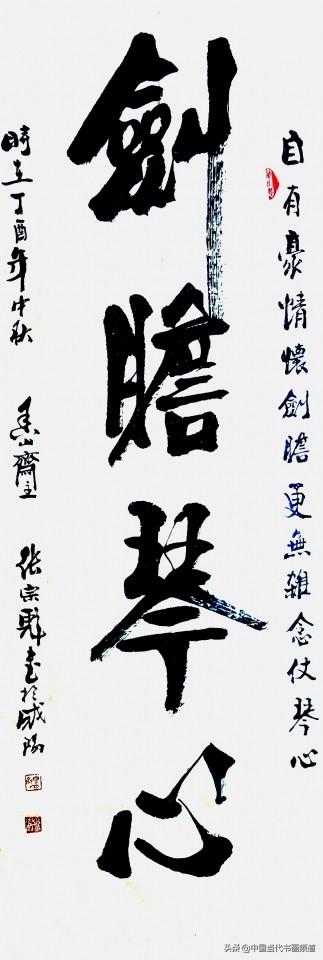 自有豪情懷劍膽更無雜念仗琴心
劍膽琴心
時在丁酉年中秋 山齋主 张宗 书於咸阳
头条 @中国当代书画频道